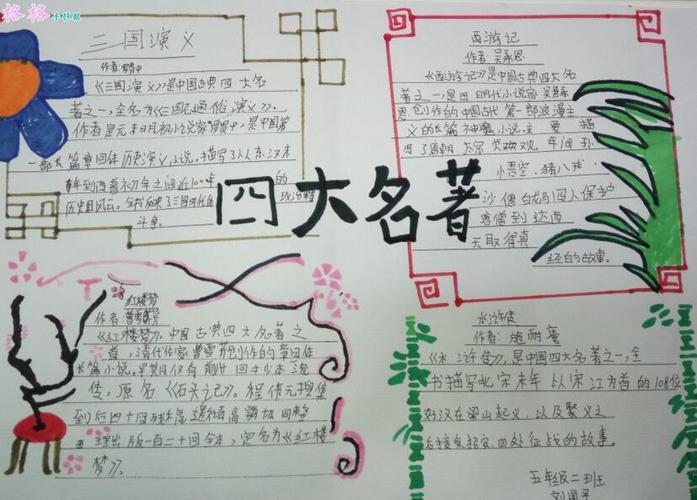 格格
三国演义
作者:
《三国演义》是中国古典四大名
著之一,全名为《三国通俗演义》.
作者是元末明初小说家 中,是中国第
一部长篇章回体历史演义小说,描写了从东汉末
年到西晋初年之间近100年的
历史风云。全书反映了三国时代的政治军
斗争.
四大名著
西游记
作者:吴承恩
《西游记》是中国古典四大名
著之一,是 明代小说家吴承
恩创作的中国古代第一部浪漫主
义的长篇神魔小说.主要描
写了唐朝太宗 年间孙
悟空,猪八戒
沙僧白龙马四人保护
唐僧到达西
天取得真
经的故事。
红楼梦
作者:曹雪芹
《红楼梦》,中国古典四大名著之
首,清代作家曹雪芹创作的章回体
长篇小说,早期仅有前八十回抄本流
传,原名《石头记》。程伟元搜集
到后四十回残稿 高鹗协同整
理出版一百二十回全本,定名为《红楼
梦》。
水浒传
作者:施耐庵
《水浒传》,是中国四大名著之一,全
书描写北宋末年以宋江为首的108位
好汉在梁山起义,以及聚义之
后接受招安,四处征战的故事。
五年级二班